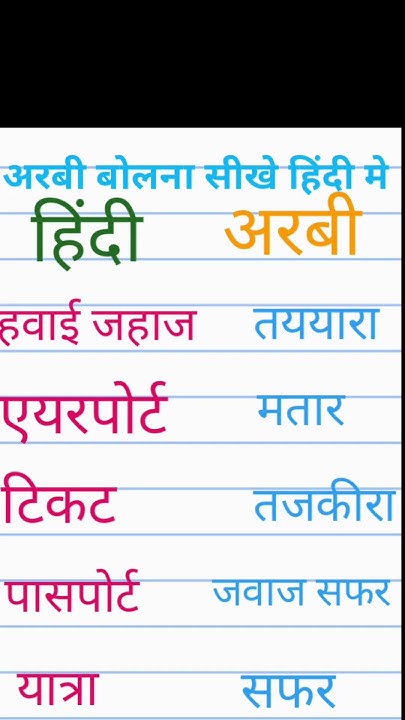 अरबी बोलना सीखे हिंदी मे
हिंदी अरबी
हवाई जहाज तययारा
एयरपोर्ट मतार
टिकट तजकीरा
पासपोर्ट जवाज सफर
यात्रा सफर